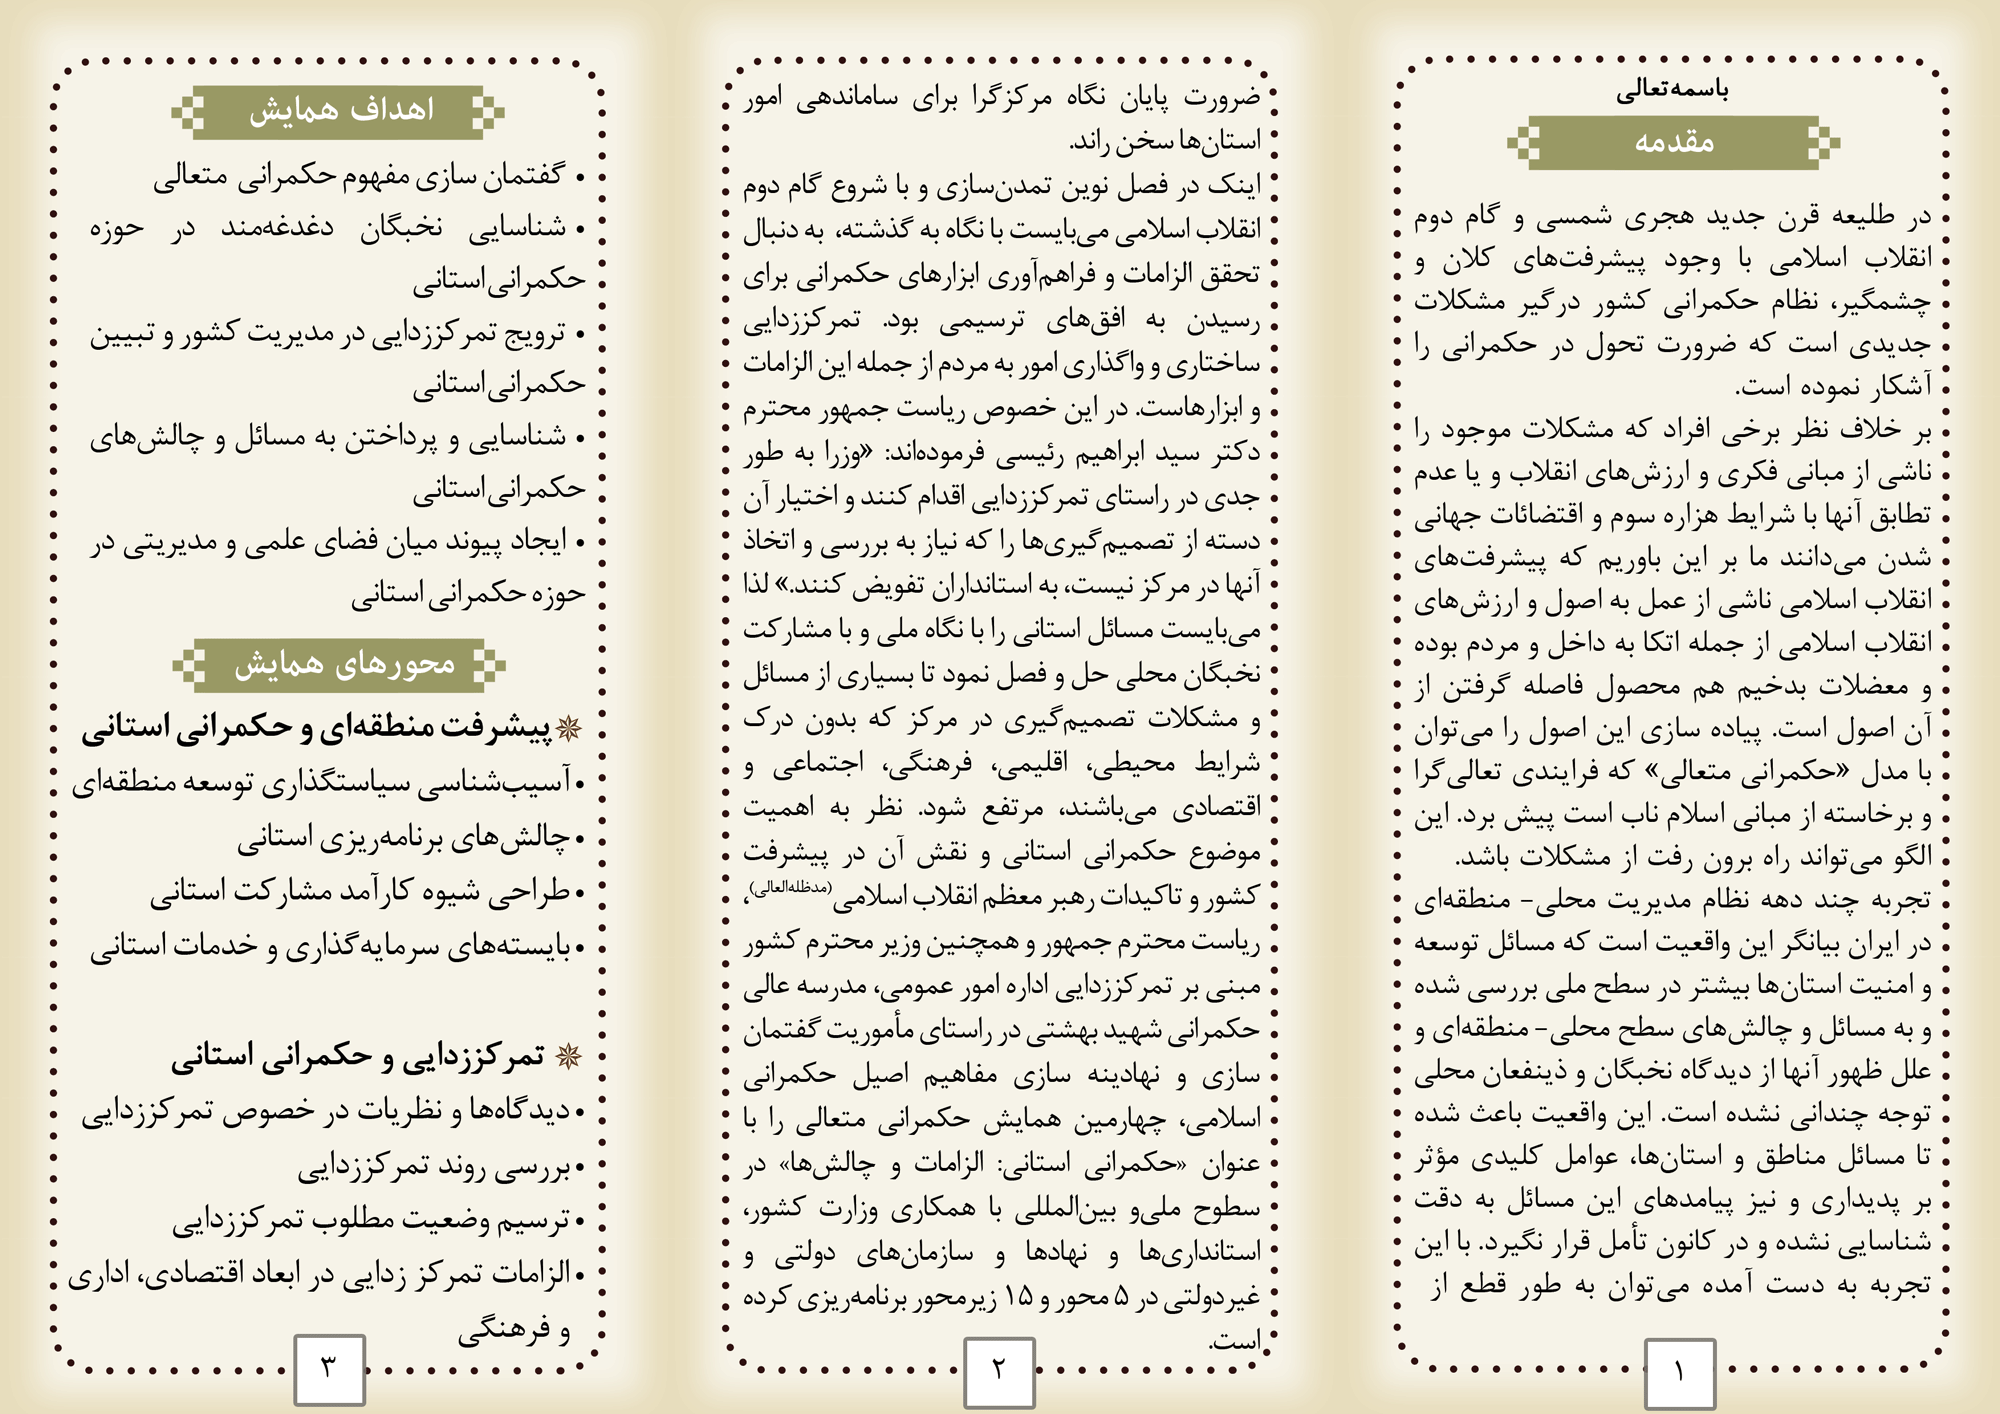 باسمه‌تعالی
مقدمه
در طلیعه قرن جدید هجری شمسی و گام دوم
انقلاب اسلامی با وجود پیشرفت‌های کلان و
چشمگیر، نظام حکمرانی کشور درگیر مشکلات
جدیدی است که ضرورت تحول در حکمرانی را
آشکار نموده است.
بر خلاف نظر برخی افراد که مشکلات موجود را
ناشی از مبانی فکری و ارزش‌های انقلاب و یا عدم
تطابق آنها با شرایط هزاره سوم و اقتضائات جهانی
شدن می‌دانند ما بر این باوریم که پیشرفت‌های
انقلاب اسلامی ناشی از عمل به اصول و ارزش‌های
انقلاب اسلامی از جمله اتکا به داخل و مردم بوده
و معضلات بدخیم هم محصول فاصله گرفتن از
آن اصول است. پیاده سازی این اصول را می‌توان
با مدل «حکمرانی متعالی» که فرایندی تعالی‌گرا
و برخاسته از مبانی اسلام ناب است پیش برد. این
الگو می‌تواند راه برون رفت از مشکلات باشد.
تجربه چند دهه نظام مدیریت محلی- منطقه‌ای
در ایران بیانگر این واقعیت است که مسائل توسعه
و امنیت استان‌ها بیشتر در سطح ملی بررسی شده
و به مسائل و چالش‌های سطح محلی- منطقه‌ای و
علل ظهور آنها از دیدگاه نخبگان و ذینفعان محلی
توجه چندانی نشده است. این واقعیت باعث شده
تا مسائل مناطق و استان‌ها، عوامل کلیدی مؤثر
بر پدیداری و نیز پیامدهای این مسائل به دقت
شناسایی نشده و در کانون تأمل قرار نگیرد. با این
تجربه به دست آمده می‌توان به طور قطع از
۱
ضرورت پایان نگاه مرکزگرا برای ساماندهی امور
استان‌ها سخن راند.
اینک در فصل نوین تمدن‌سازی و با شروع گام دوم
انقلاب اسلامی می‌بایست با نگاه به گذشته، به دنبال
تحقق الزامات و فراهم‌آوری ابزارهای حکمرانی برای
رسیدن به افق‌های ترسیمی بود. تمرکززدایی
ساختاری و واگذاری امور به مردم از جمله این الزامات
و ابزارهاست. در این خصوص ریاست جمهور محترم
دکتر سید ابراهیم رئیسی فرموده‌اند: «وزرا به طور
جدی در راستای تمرکززدایی اقدام کنند و اختیار آن
دسته از تصمیم‌گیری‌ها را که نیاز به بررسی و اتخاذ
آنها در مرکز نیست، به استانداران تفویض کنند.» لذا
می‌بایست مسائل استانی را با نگاه ملی و با مشارکت
نخبگان محلی حل و فصل نمود تا بسیاری از مسائل
و مشکلات تصمیم‌گیری در مرکز که بدون درک
شرایط محیطی، اقلیمی، فرهنگی، اجتماعی و
اقتصادی می‌باشند، مرتفع شود. نظر به اهمیت
موضوع حکمرانی استانی و نقش آن در پیشرفت
کشور و تاکیدات رهبر معظم انقلاب اسلامی(مدظله‌العالی)،
ریاست محترم جمهور و همچنین وزیر محترم کشور
مبنی بر تمرکززدایی اداره امور عمومی، مدرسه عالی
حکمرانی شهید بهشتی در راستای مأموریت گفتمان
سازی و نهادینه سازی مفاهیم اصیل حکمرانی
اسلامی، چهارمین همایش حکمرانی متعالی را با
عنوان «حکمرانی استانی: الزامات و چالش‌ها» در
سطوح ملی‌و بین‌المللی با همکاری وزارت کشور،
استانداری‌ها و نهادها و سازمان‌های دولتی و
غیردولتی در ۵ محور و ۱۵ زیرمحور برنامه‌ریزی کرده
است.
۲
اهداف همایش
• گفتمان سازی مفهوم حکمرانی متعالی
• شناسایی نخبگان دغدغه‌مند در حوزه
حکمرانی‌استانی
• ترویج تمرکززدایی در مدیریت کشور و تبیین
حکمرانی‌استانی
• شناسایی و پرداختن به مسائل و چالش‌های
حکمرانی‌استانی
• ایجاد پیوند میان فضای علمی و مدیریتی در
حوزه حکمرانی استانی
محورهای همایش
پیشرفت منطقه‌ای و حکمرانی استانی
•آسیب‌شناسی سیاستگذاری توسعه منطقه‌ای
•چالش‌های برنامه‌ریزی استانی
•طراحی شیوه کارآمد مشارکت استانی
•بایسته‌های سرمایه‌گذاری و خدمات استانی
تمرکززدایی و حکمرانی استانی
•دیدگاه‌ها و نظریات در خصوص تمرکززدایی
•بررسی روند تمرکززدایی
•ترسیم وضعیت مطلوب تمرکززدایی
•الزامات تمرکز زدایی در ابعاد اقتصادی، اداری
و فرهنگی
۳